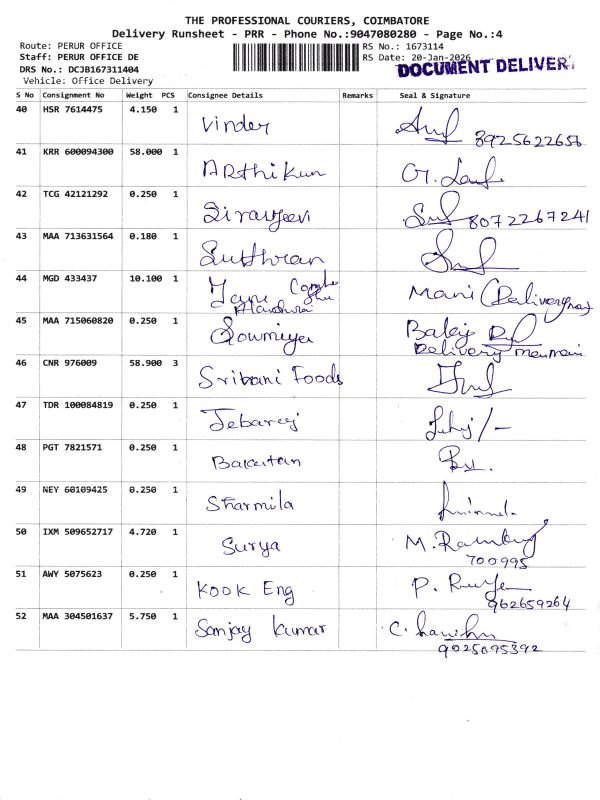 THE PROFESSIONAL COURIERS, COIMBATORE
Delivery Runsheet - PRR - Phone No.:9047080280 - Page No.:4
Route: PERUR OFFICE RS No.: 1673114
Staff: PERUR OFFICE DE RS Date: 20-Jan-2026
DRS No.: DCJB167311404 DOCUMENT DELIVER
Vehicle: Office Delivery
S No Consignment No Weight PCS Consignee Details Remarks Seal & Signature
40 HSR 7614475 4.150 1 Vinder 8925622656
41 KRR 600094300 58.000 1 Arthikun
42 TCG 42121292 0.250 1 8072267241
43 MAA 713631564 0.180 1
44 MGD 433437 10.100 1 Mani (Delivery
45 MAA 715060820 0.250 1 Sowmiya Balaji
Delivery
46 CNR 976009 58.900 3 Sribani Foods
47 TDR 100084819 0.250 1 Jebaraj
48 PGT 7821571 0.250 1
49 NEY 60109425 0.250 1 Sharmila
50 IXM 509652717 4.720 1 Surya M.
700995
51 AWY 5075623 0.250 1 Kook Eng P.
962659264
52 MAA 304501637 5.750 1 Sanjay Kumar C.
9025095392